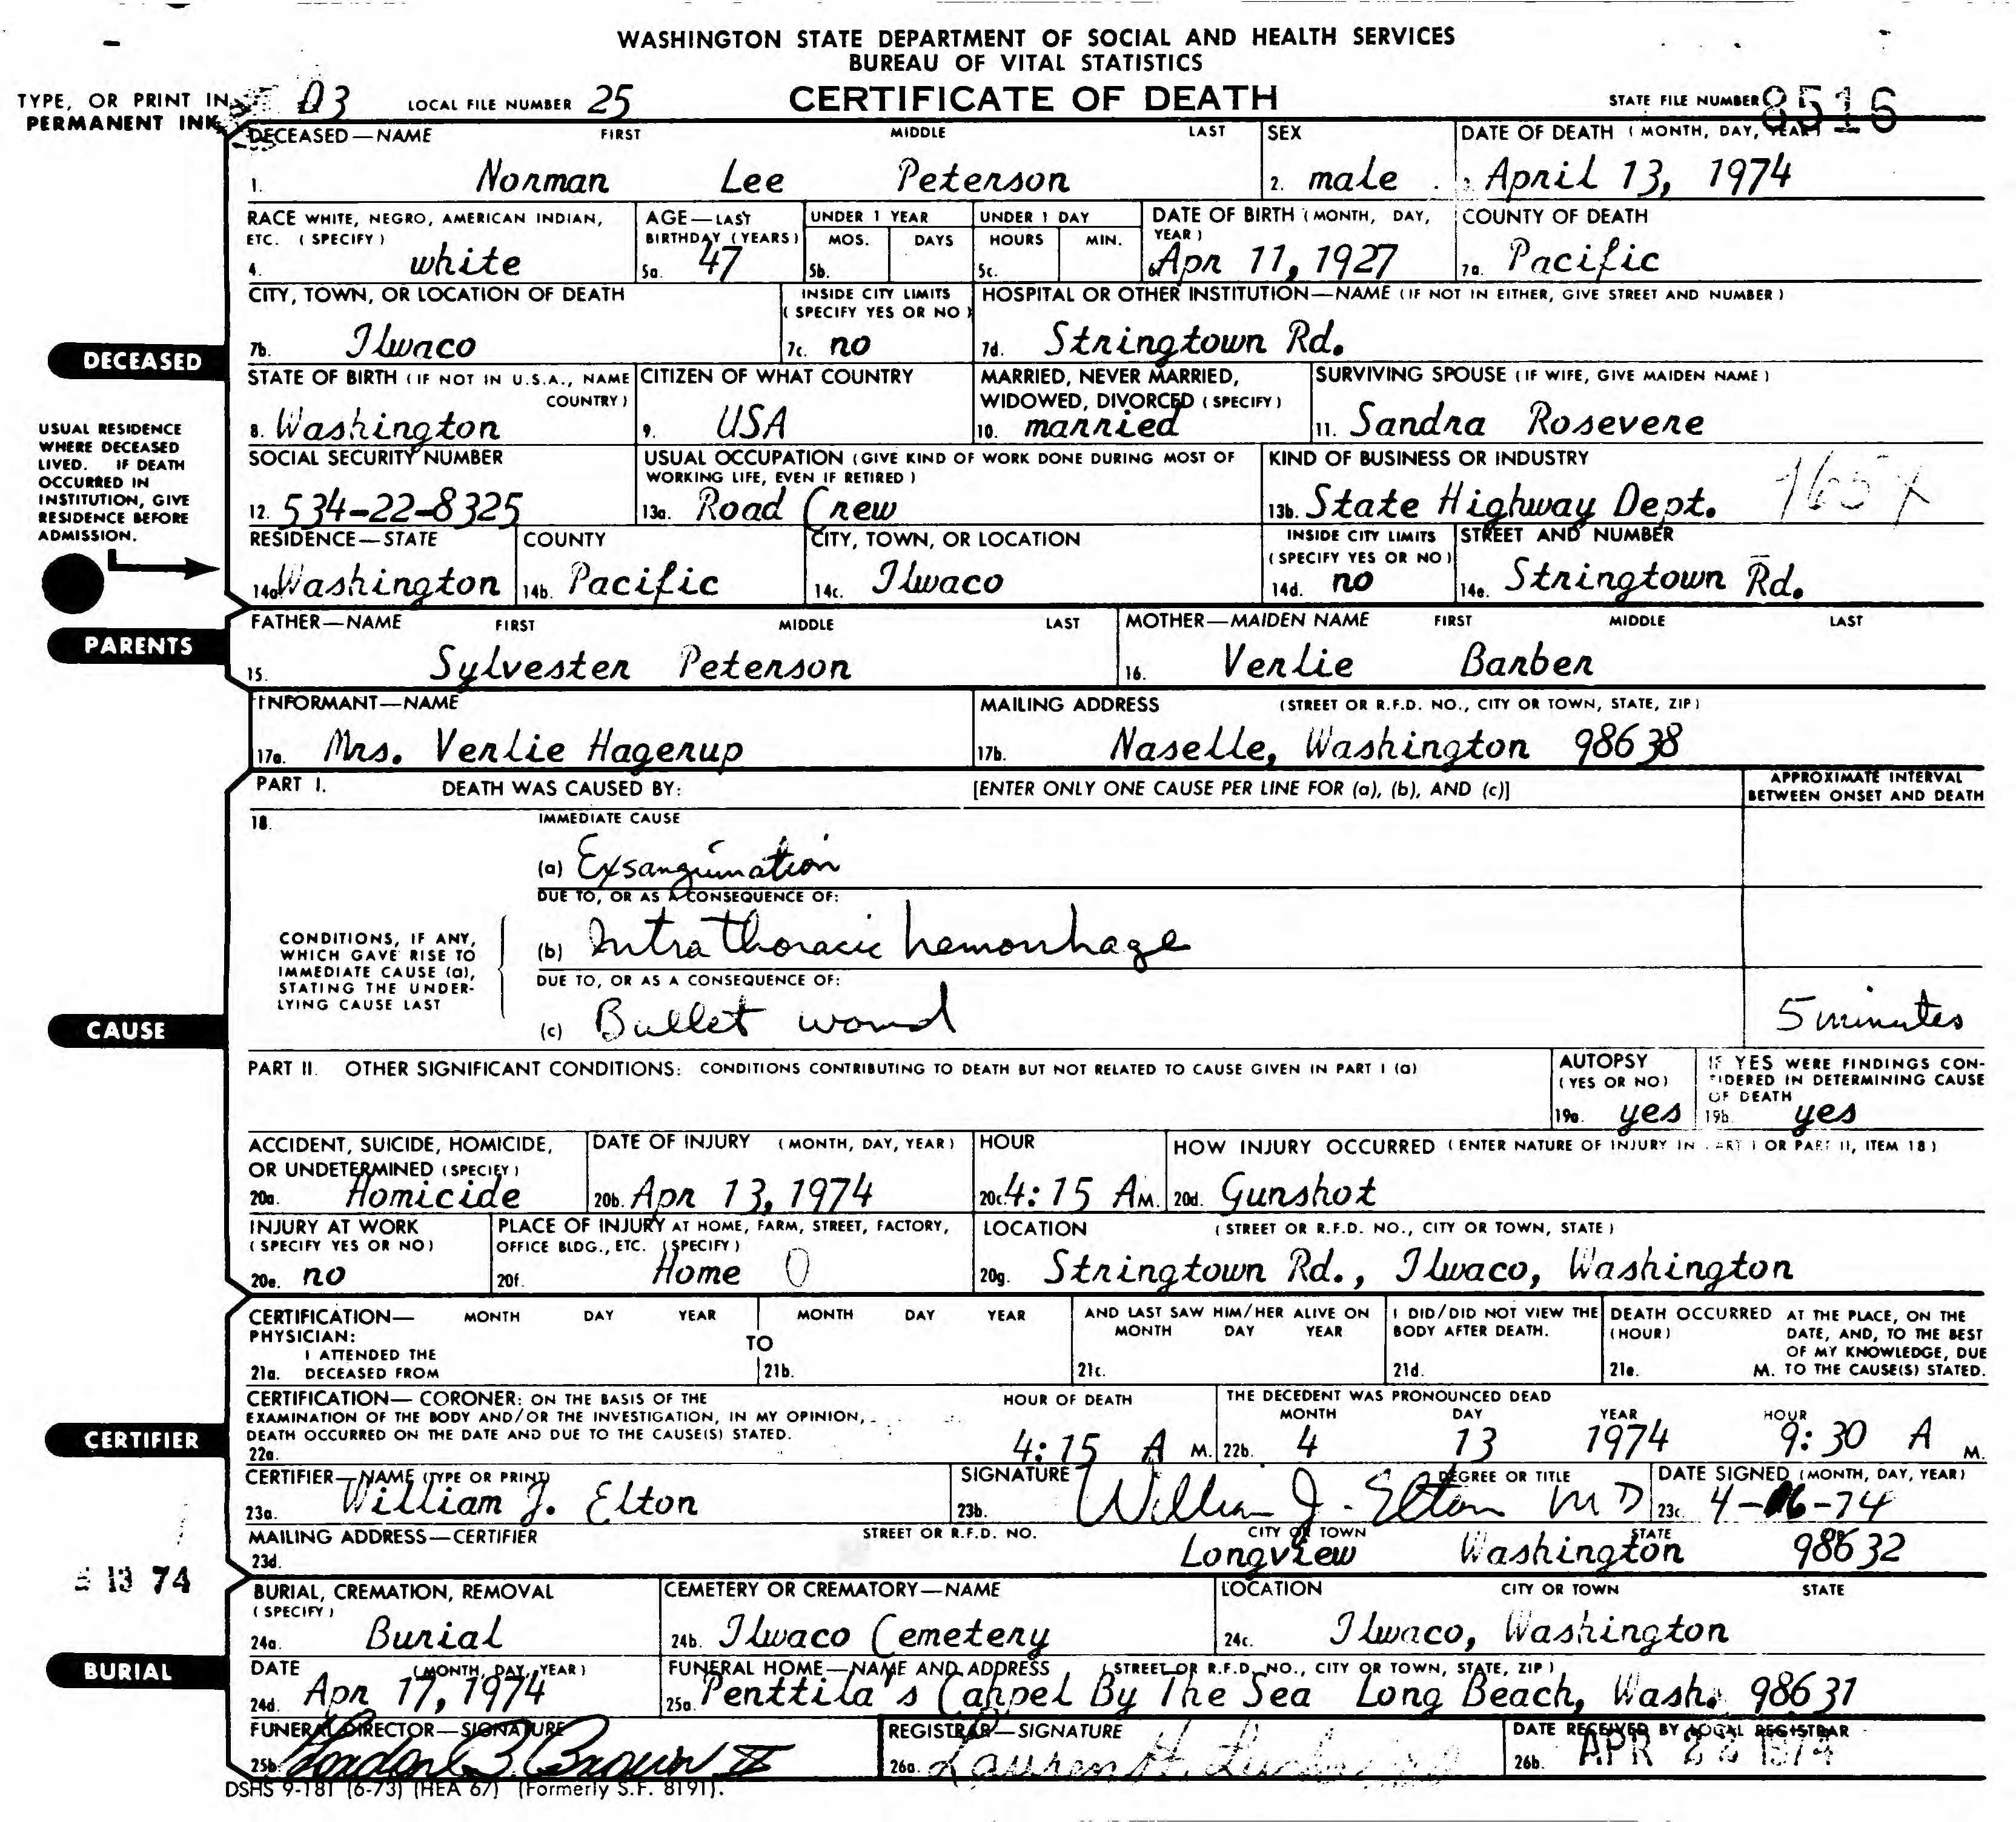 WASHINGTON STATE DEPARTMENT OF SOCIAL AND HEALTH SERVICES
BUREAU OF VITAL STATISTICS
TYPE, OR PRINT IN
PERMANENT INK
03 LOCAL FILE NUMBER 25 CERTIFICATE OF DEATH STATE FILE NUMBER 8516
DECEASED—NAME FIRST MIDDLE LAST SEX DATE OF DEATH (MONTH, DAY, YEAR)
1. Norman Lee Peterson 2. male 3. April 13, 1974
RACE WHITE, NEGRO, AMERICAN INDIAN, AGE—LAST UNDER 1 YEAR UNDER 1 DAY DATE OF BIRTH (MONTH, DAY, COUNTY OF DEATH
ETC. (SPECIFY) BIRTHDAY (YEARS) MOS. DAYS HOURS MIN. YEAR)
4. white 5a. 47 5b. 5c. 6. Apr 11, 1927 7a. Pacific
CITY, TOWN, OR LOCATION OF DEATH INSIDE CITY LIMITS HOSPITAL OR OTHER INSTITUTION—NAME (IF NOT IN EITHER, GIVE STREET AND NUMBER)
(SPECIFY YES OR NO)
7b. Ilwaco 7c. no 7d. Stringtown Rd.
DECEASED
STATE OF BIRTH (IF NOT IN U.S.A., NAME CITIZEN OF WHAT COUNTRY MARRIED, NEVER MARRIED, SURVIVING SPOUSE (IF WIFE, GIVE MAIDEN NAME)
COUNTRY) WIDOWED, DIVORCED (SPECIFY)
8. Washington 9. USA 10. married 11. Sandra Rosevere
USUAL RESIDENCE
WHERE DECEASED
LIVED. IF DEATH
OCCURRED IN
INSTITUTION, GIVE
RESIDENCE BEFORE
ADMISSION.
SOCIAL SECURITY NUMBER USUAL OCCUPATION (GIVE KIND OF WORK DONE DURING MOST OF KIND OF BUSINESS OR INDUSTRY
WORKING LIFE, EVEN IF RETIRED)
12. 534-22-8325 13a. Road Crew 13b. State Highway Dept.
RESIDENCE—STATE COUNTY CITY, TOWN, OR LOCATION INSIDE CITY LIMITS STREET AND NUMBER
(SPECIFY YES OR NO)
14a. Washington 14b. Pacific 14c. Ilwaco 14d. no 14e. Stringtown Rd.
PARENTS
FATHER—NAME FIRST MIDDLE LAST MOTHER—MAIDEN NAME FIRST MIDDLE LAST
15. Sylvester Peterson 16. Verlie Barber
INFORMANT—NAME MAILING ADDRESS (STREET OR R.F.D. NO., CITY OR TOWN, STATE, ZIP)
17a. Mrs. Verlie Hagerup 17b. Naselle, Washington 98638
PART I. DEATH WAS CAUSED BY: [ENTER ONLY ONE CAUSE PER LINE FOR (a), (b), AND (c)] APPROXIMATE INTERVAL
BETWEEN ONSET AND DEATH
18. IMMEDIATE CAUSE
(a) Exsanguination
DUE TO, OR AS A CONSEQUENCE OF:
CONDITIONS, IF ANY,
WHICH GAVE RISE TO
IMMEDIATE CAUSE (a),
STATING THE UNDER-
LYING CAUSE LAST
(b) Intra thoracic hemorrhage
DUE TO, OR AS A CONSEQUENCE OF:
(c) Bullet wound 5 minutes
CAUSE
PART II. OTHER SIGNIFICANT CONDITIONS: CONDITIONS CONTRIBUTING TO DEATH BUT NOT RELATED TO CAUSE GIVEN IN PART I (a) AUTOPSY IF YES WERE FINDINGS CON-
(YES OR NO) SIDERED IN DETERMINING CAUSE
OF DEATH
19a. yes 19b. yes
ACCIDENT, SUICIDE, HOMICIDE, DATE OF INJURY (MONTH, DAY, YEAR) HOUR HOW INJURY OCCURRED (ENTER NATURE OF INJURY IN PART I OR PART II, ITEM 18)
OR UNDETERMINED (SPECIFY)
20a. Homicide 20b. Apr 13, 1974 20c. 4:15 AM. 20d. Gunshot
INJURY AT WORK PLACE OF INJURY AT HOME, FARM, STREET, FACTORY, LOCATION (STREET OR R.F.D. NO., CITY OR TOWN, STATE)
(SPECIFY YES OR NO) OFFICE BLDG., ETC. (SPECIFY)
20e. no 20f. Home 0 20g. Stringtown Rd., Ilwaco, Washington
CERTIFICATION— MONTH DAY YEAR MONTH DAY YEAR AND LAST SAW HIM/HER ALIVE ON I DID/DID NOT VIEW THE DEATH OCCURRED AT THE PLACE, ON THE
PHYSICIAN: TO MONTH DAY YEAR BODY AFTER DEATH. (HOUR) DATE, AND, TO THE BEST
I ATTENDED THE OF MY KNOWLEDGE, DUE
21a. DECEASED FROM 21b. 21c. 21d. 21e. M. TO THE CAUSE(S) STATED.
CERTIFICATION—CORONER: ON THE BASIS OF THE HOUR OF DEATH THE DECEDENT WAS PRONOUNCED DEAD
EXAMINATION OF THE BODY AND/OR THE INVESTIGATION, IN MY OPINION, MONTH DAY YEAR HOUR
DEATH OCCURRED ON THE DATE AND DUE TO THE CAUSE(S) STATED.
22a. 4:15 A M. 22b. 4 13 1974 9:30 A M.
CERTIFIER
CERTIFIER—NAME (TYPE OR PRINT) SIGNATURE DEGREE OR TITLE DATE SIGNED (MONTH, DAY, YEAR)
23a. William J. Elton 23b. William J. Elton MD 23c. 4-16-74
MAILING ADDRESS—CERTIFIER STREET OR R.F.D. NO. CITY OR TOWN STATE
23d. Longview Washington 98632
5 13 74
BURIAL, CREMATION, REMOVAL CEMETERY OR CREMATORY—NAME LOCATION CITY OR TOWN STATE
(SPECIFY)
24a. Burial 24b. Ilwaco Cemetery 24c. Ilwaco, Washington
BURIAL
DATE (MONTH, DAY, YEAR) FUNERAL HOME—NAME AND ADDRESS (STREET OR R.F.D. NO., CITY OR TOWN, STATE, ZIP)
24d. Apr 17, 1974 25a. Penttila's Cahpel By The Sea Long Beach, Wash. 98631
FUNERAL DIRECTOR—SIGNATURE REGISTRAR—SIGNATURE DATE RECEIVED BY LOCAL REGISTRAR
25b. Gordon B. Brown II 26a. Lauren H. 26b. APR 22 1974
DSHS 9-181 (6-73) (HEA 67) (Formerly S.F. 8191).